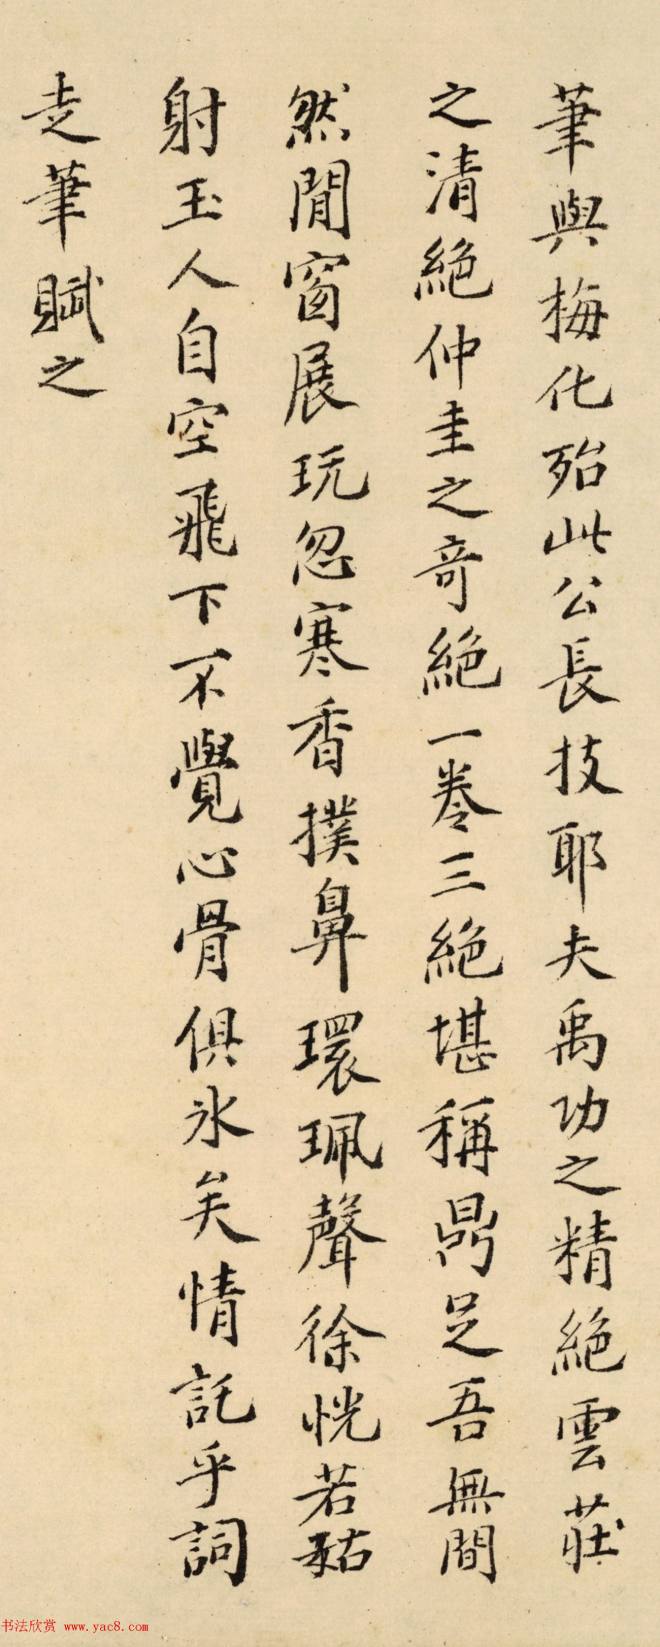 筆與梅化殆此公長技耶夫禹功之精絕雲莊
之清絕仲圭之奇絕一卷三絕堪稱鼎足吾無間
然閒窗展玩忽寒香撲鼻環珮聲徐恍若菇
射玉人自空飛下不覺心骨俱冰矣情託乎詞
走筆賦之
书法欣赏 www.yac8.com